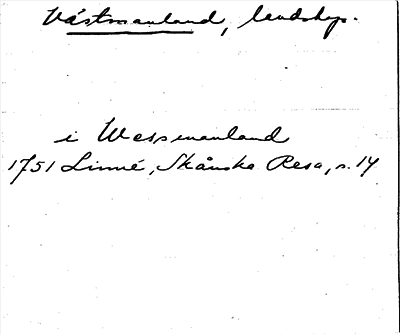 Västmanland, landskap.
i Wessmanland
1751 Linné, Skånska Resa, s. 14